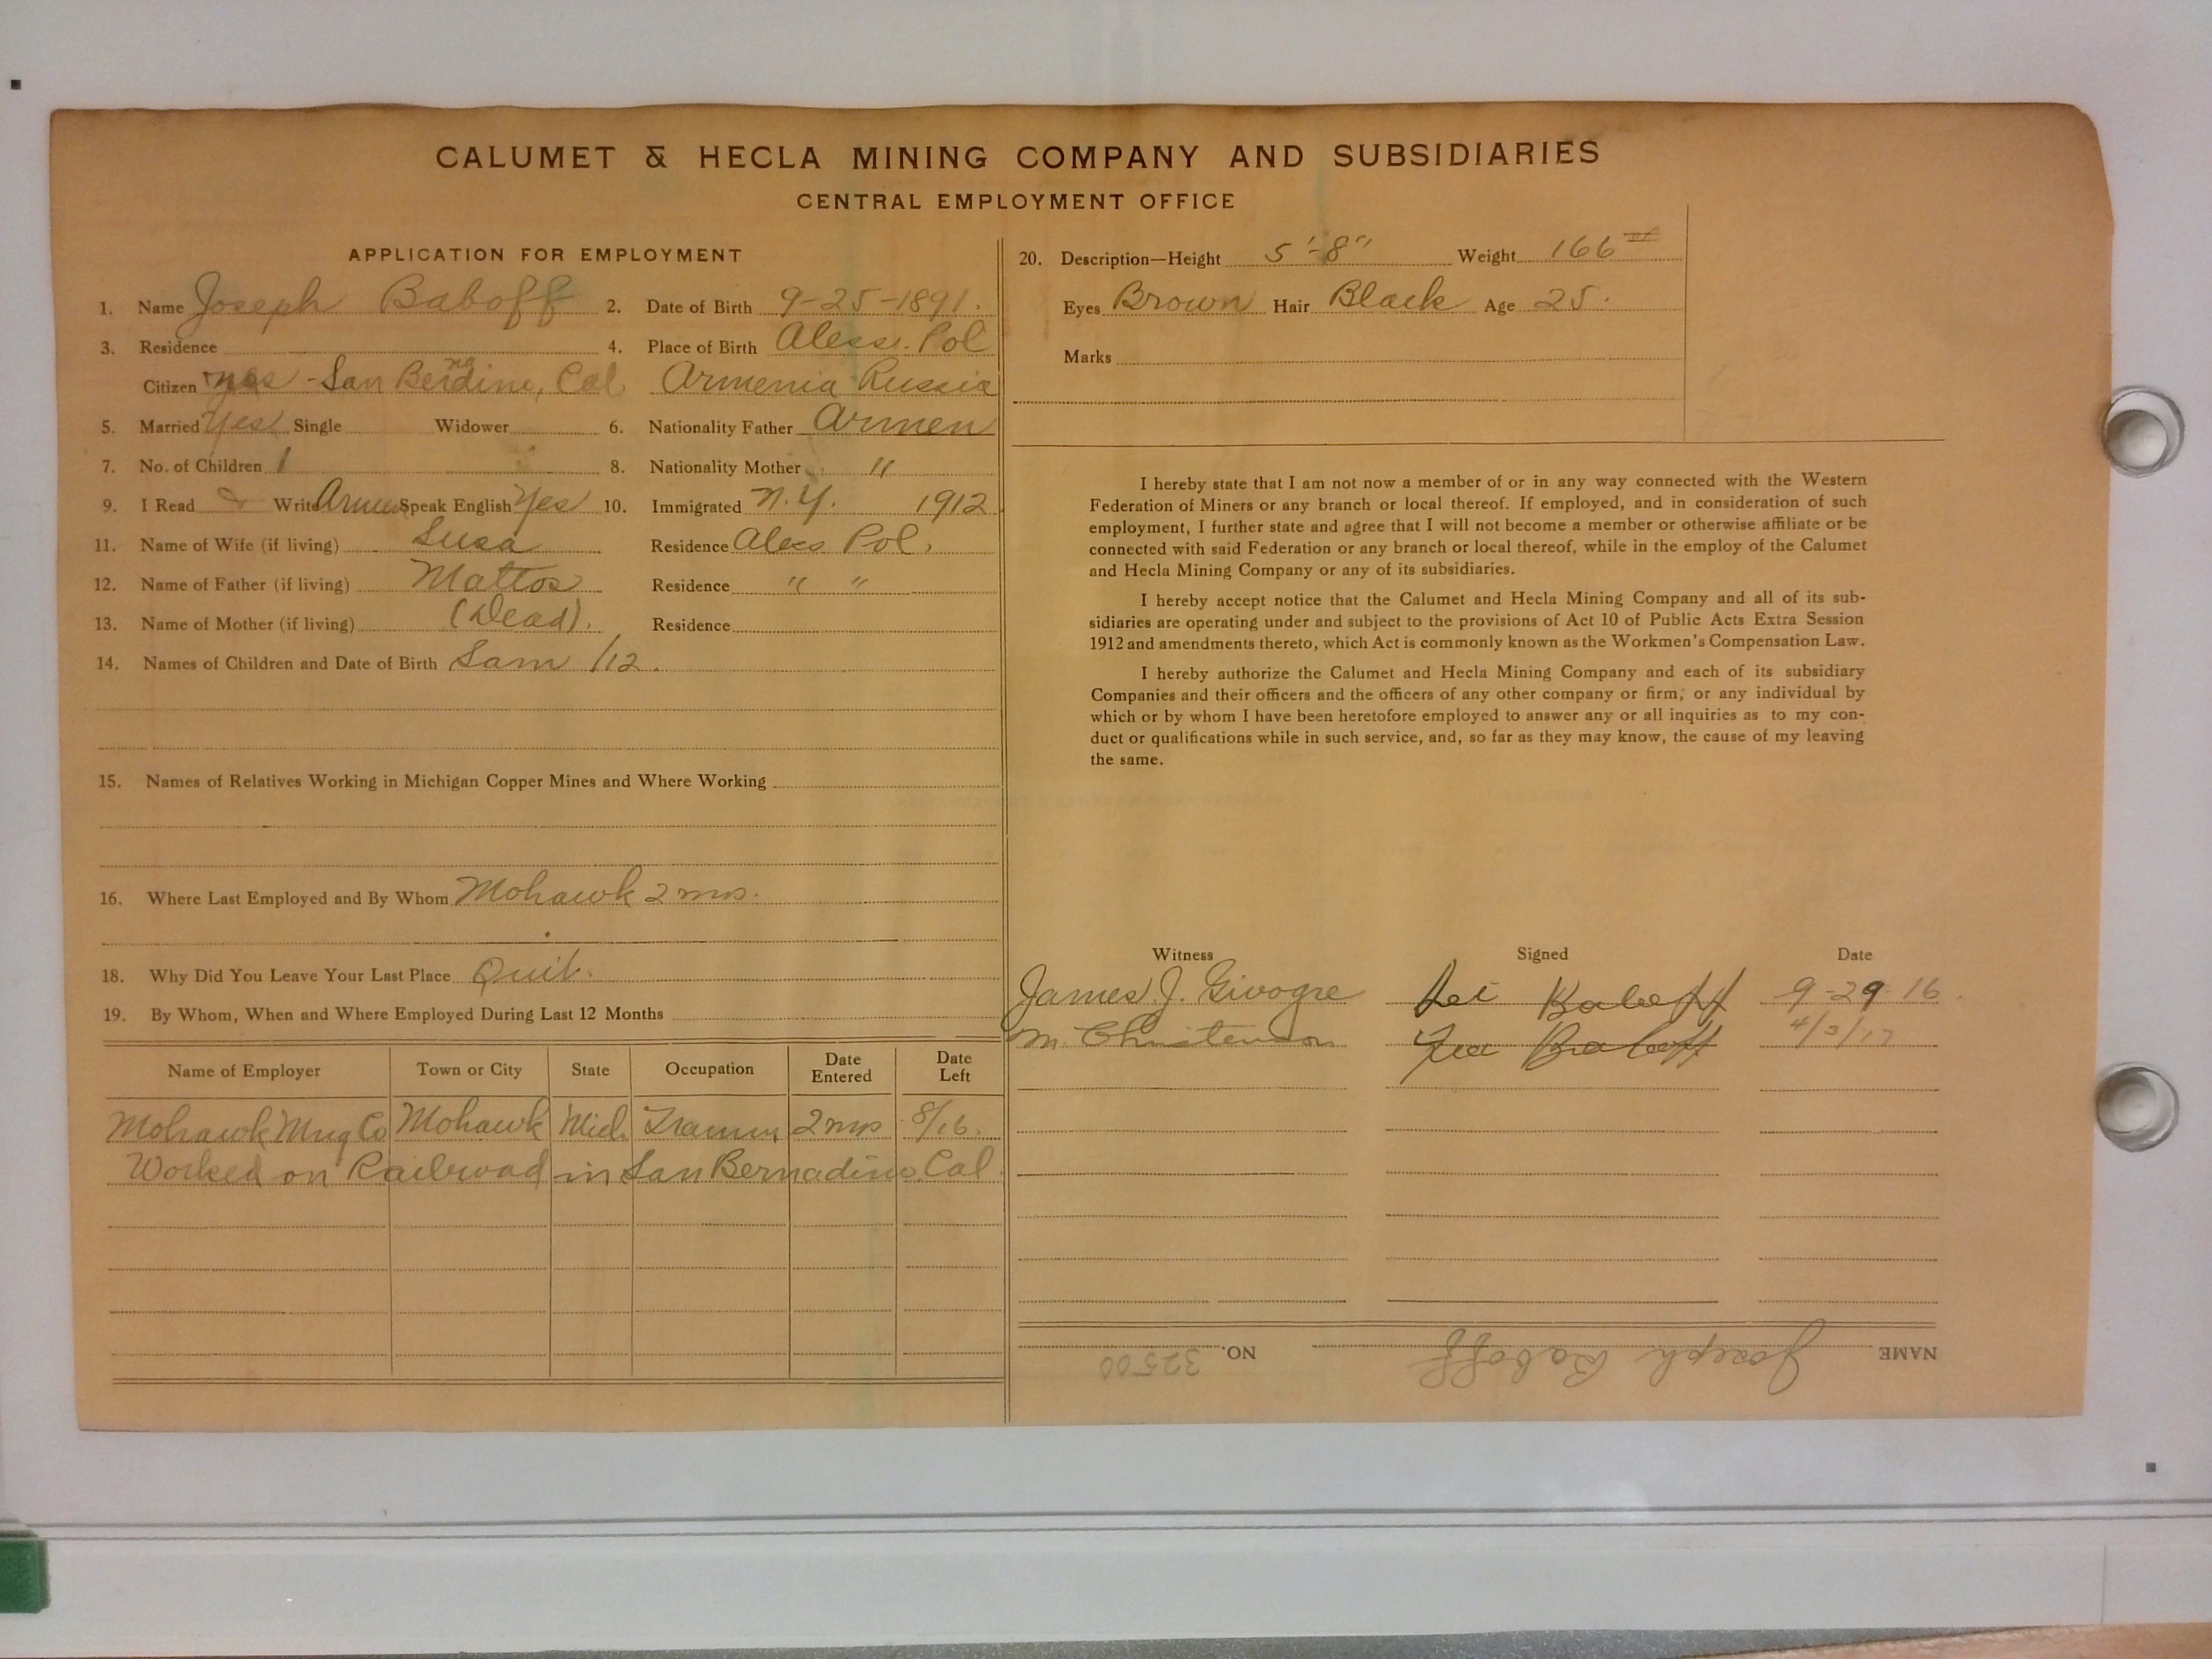 CALUMET & HECLA MINING COMPANY AND SUBSIDIARIES
CENTRAL EMPLOYMENT OFFICE
APPLICATION FOR EMPLOYMENT
1. Name Joseph Baboff 2. Date of Birth 9-25-1891.
3. Residence 4. Place of Birth Aless. Pol
Citizen San Berdino, Cal Armenia Russia
5. Married Yes Single Widower 6. Nationality Father Armen
7. No. of Children 1 8. Nationality Mother "
9. I Read & Write Armen Speak English Yes 10. Immigrated N.Y. 1912
11. Name of Wife (if living) Susa Residence Aless Pol.
12. Name of Father (if living) Mattos Residence " "
13. Name of Mother (if living) (Dead). Residence
14. Names of Children and Date of Birth Sam /12.
15. Names of Relatives Working in Michigan Copper Mines and Where Working
16. Where Last Employed and By Whom Mohawk 2 mos.
18. Why Did You Leave Your Last Place Quit.
19. By Whom, When and Where Employed During Last 12 Months
Name of Employer Town or City State Occupation Date Entered Date Left
Mohawk Mng Co Mohawk Mich Trammer 2 mos 8/16.
Worked on Railroad in San Bernadino Cal.
20. Description—Height 5'-8" Weight 166
Eyes Brown Hair Black Age 25.
Marks
I hereby state that I am not now a member of or in any way connected with the Western
Federation of Miners or any branch or local thereof. If employed, and in consideration of such
employment, I further state and agree that I will not become a member or otherwise affiliate or be
connected with said Federation or any branch or local thereof, while in the employ of the Calumet
and Hecla Mining Company or any of its subsidiaries.
I hereby accept notice that the Calumet and Hecla Mining Company and all of its sub-
sidiaries are operating under and subject to the provisions of Act 10 of Public Acts Extra Session
1912 and amendments thereto, which Act is commonly known as the Workmen's Compensation Law.
I hereby authorize the Calumet and Hecla Mining Company and each of its subsidiary
Companies and their officers and the officers of any other company or firm, or any individual by
which or by whom I have been heretofore employed to answer any or all inquiries as to my con-
duct or qualifications while in such service, and, so far as they may know, the cause of my leaving
the same.
Witness Signed Date
James J. Givogre Baboff 9-29-16.
M. Christenson Baboff 4/3/17
NAME Joseph Baboff NO. 32500